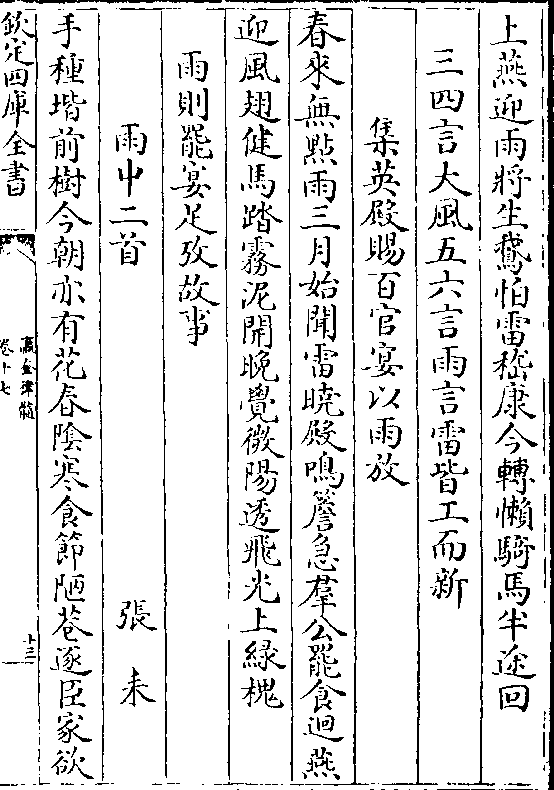 上燕迎雨將生鵞怕雷嵇康今轉懶騎馬半途回
三四言大風五六言雨言雷皆工而新
集英殿賜百官宴以雨放
春來無點雨三月始聞雷曉殿鳴簷急羣公罷食迴燕
迎風翅健馬踏霧泥開晚覺微陽透飛光上緑槐
雨則罷宴足攷故事
雨中二首 張耒
手種堦前樹今朝亦有花春隂寒食節陋巷逐臣家欲
欽定四庫全書
瀛奎律髓
卷十七
十三